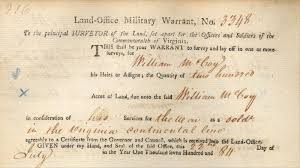 216
Land-Office Military Warrant, No. 3348
To the principal SURVEYOR of the Land, set apart for the Officers and Soldiers of the
Commonwealth of Virginia.
THIS shall be your WARRANT to survey and lay off in one or more
surveys, for
William McCoy
his Heirs or Assigns, the Quantity of two hundred
Acres of Land, due unto the said William McCoy
in consideration of his Services for the War as a soldr
in the Virginia Continental line
agreeable to a Certificate from the Governor and Council, which is received into the Land-Office.
GIVEN under my Hand, and Seal of the said Office, this 22d Day of
July in the Year One Thousand Seven Hundred and 84